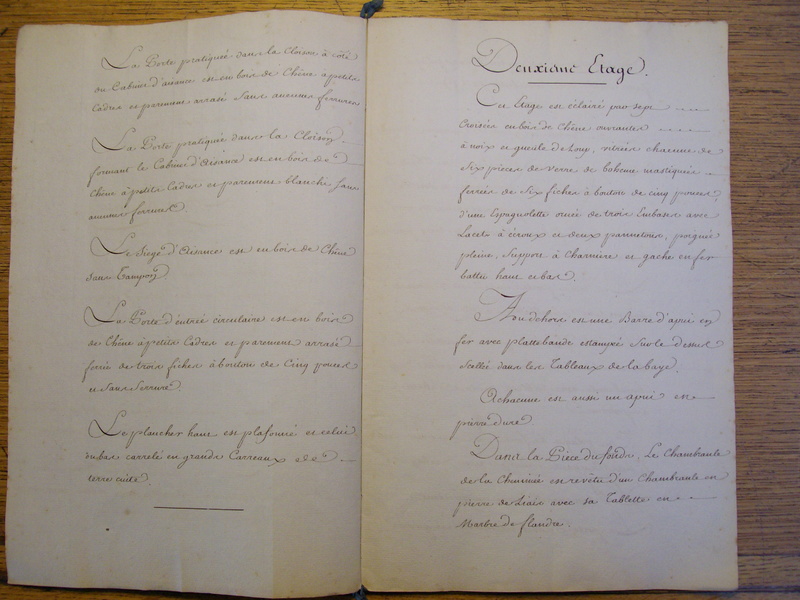 La Porte pratiquée dans la Cloison à côté
du Cabinet d'aisance est en bois de Chêne à petits
Cadres et parement arrasé sans aucunes ferrures
La Porte pratiquée dans la Cloison
formant le Cabinet d'aisance est en bois de
Chêne à petits Cadres et paremens blanchis sans
aucunes ferrures.
Le Siège d'aisance est en bois de Chêne
sans Tampon
La Porte d'entrée circulaire est en bois
de Chêne à petits Cadres et parement arrasé
ferrée de trois fiches à bouton de Cinq pouces
et sans Serrure.
Le plancher haut est plafonné et celui
du bas carrelé en grands Carreaux de
terre cuite.
Deuxième Etage.
Cet Etage est éclairé par sept
Croisées en bois de Chêne ouvrantes
à noix et gueule de Loup, vitrées chacune de
Six pièces de verre de boheme mastiquées
ferrées de Six fiches à bouton de cinq pouces,
d'une Espagnolette ornée de trois Embases avec
Lacets à écroux et deux pannetons, poignée
pleine, Support à Charniere et gache en fer
battu haut et bas.
Au dehors est une Barre d'apui en
fer avec plattebande étampée sur le dessus
Scellée dans les Tableaux de la baye.
A chacune est aussi un apui en
pierre dure.
Dans la Pièce du fond. Le Chambranle
de la Cheminée est revêtu d'un Chambranle en
pierre de Liais avec sa Tablette en
Marbre de flandre.